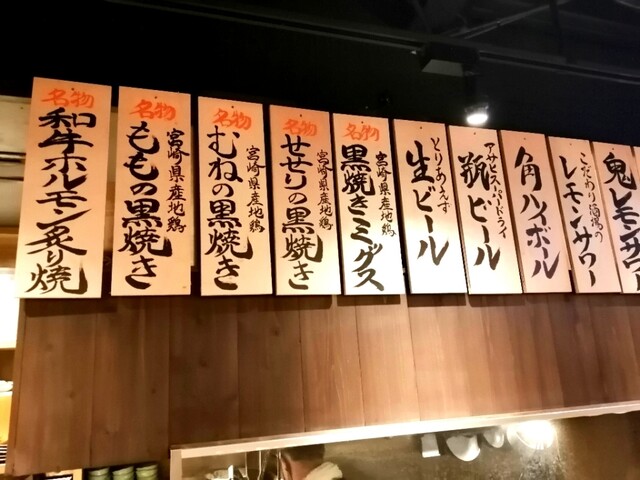 名物
和牛ホルモン炙り焼
名物
宮崎県産地鶏
ももの黒焼き
名物
宮崎県産地鶏
むねの黒焼き
名物
宮崎県産地鶏
せせりの黒焼き
名物
宮崎県産地鶏
黒焼きミックス
とりあえず
生ビール
アサヒスーパードライ
瓶ビール
角ハイボール
こだわり酒場の
レモンサワー
鬼レモンサワー